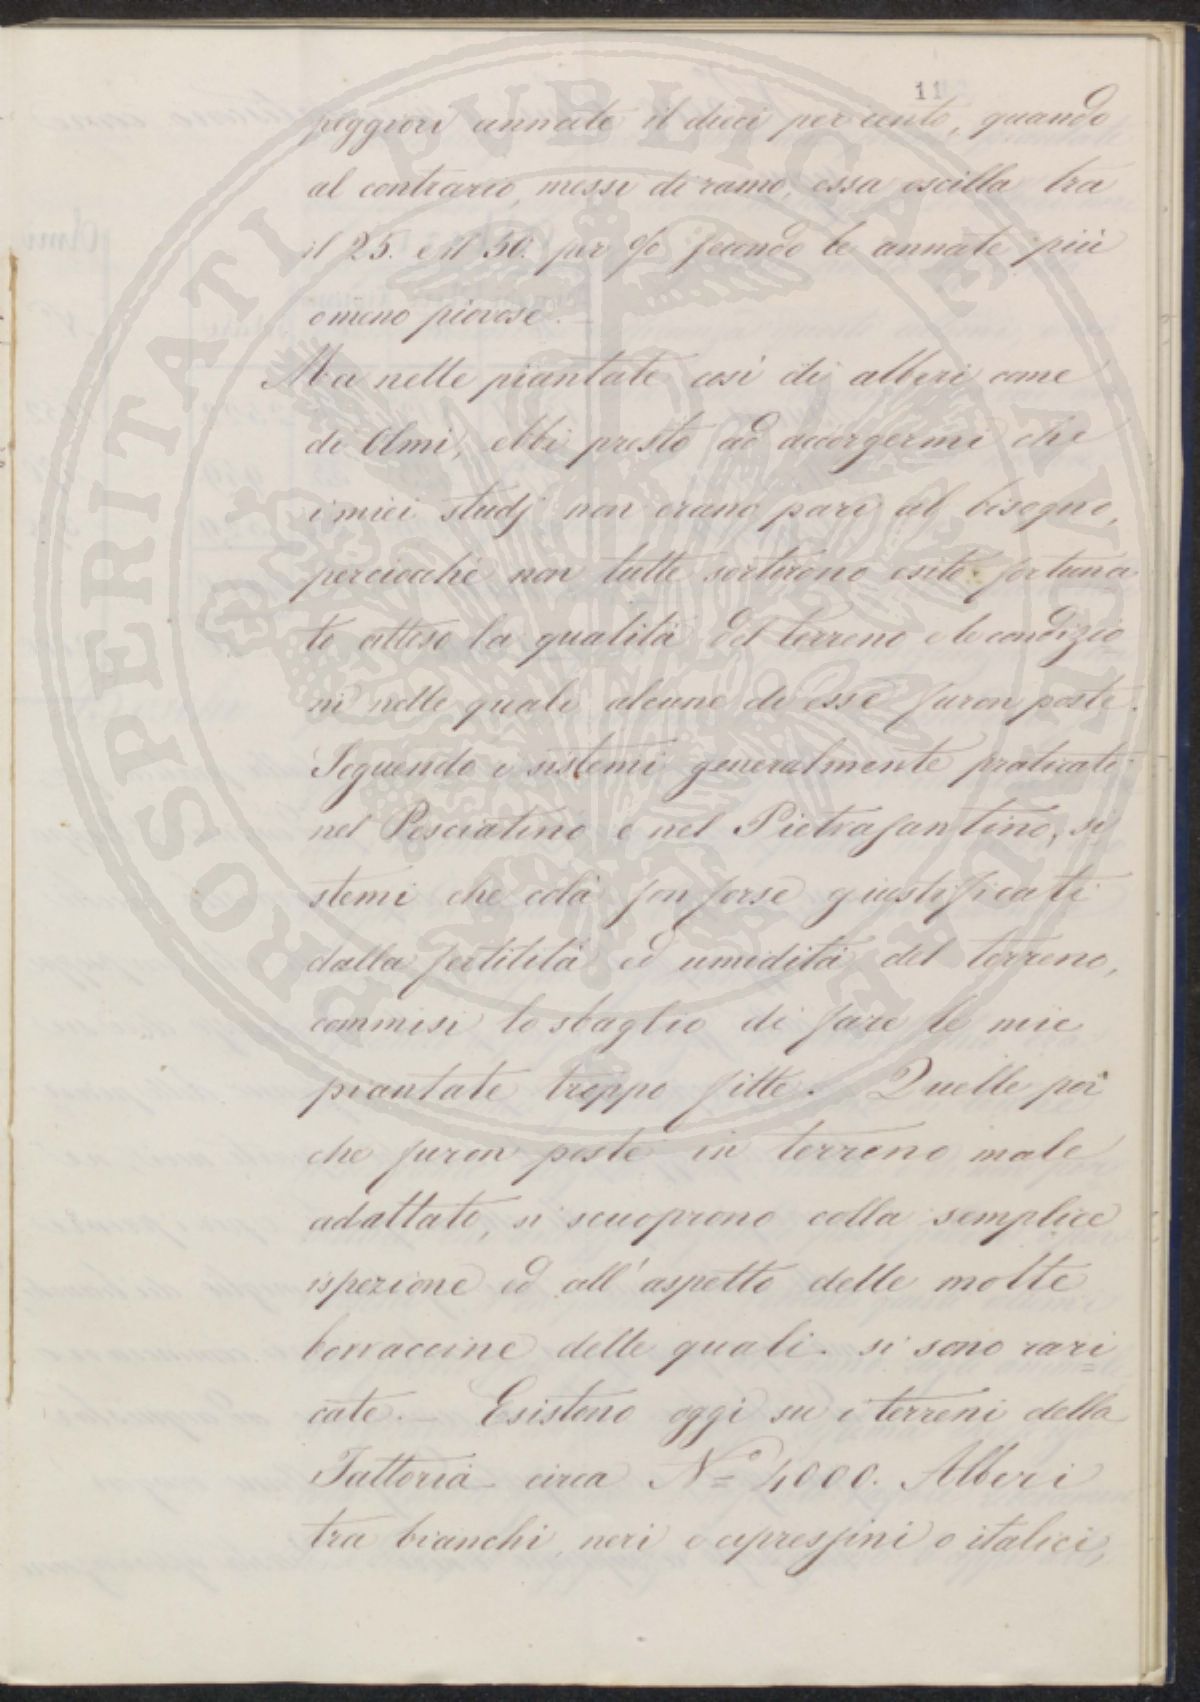 11
peggiori annate il dieci per cento, quando
al contrario, messi di ramo, essa oscilla tra
il 25. e il 50. per % secondo le annate più
o meno piovose. —
Ma nelle piantate così di alberi come
di Olmi, ebbi presto ad accorgermi che
i miei studj non erano pari al bisogno,
perciocchè non tutte sortirono esito fortuna
to atteso la qualità del terreno e le condizio
ni nelle quali alcune di esse furon poste.
Seguendo i sistemi generalmente praticati
nel Pesciatino e nel Pietrasantino, si
stemi che colà son forse giustificati
dalla fertilità ed umidità del terreno,
commisi lo sbaglio di fare le mie
piantate troppo fitte. Quelle poi
che furon poste in terreno male
adattato, si scuoprono colla semplice
ispezione ed all'aspetto delle molte
borraccine delle quali si sono cari
cate. — Esistono oggi su i terreni della
Fattoria circa N.° 4000. Alberi
tra bianchi, neri e cipressini o italici,
PROSPERITATI PVBLICAE AVGENDAE